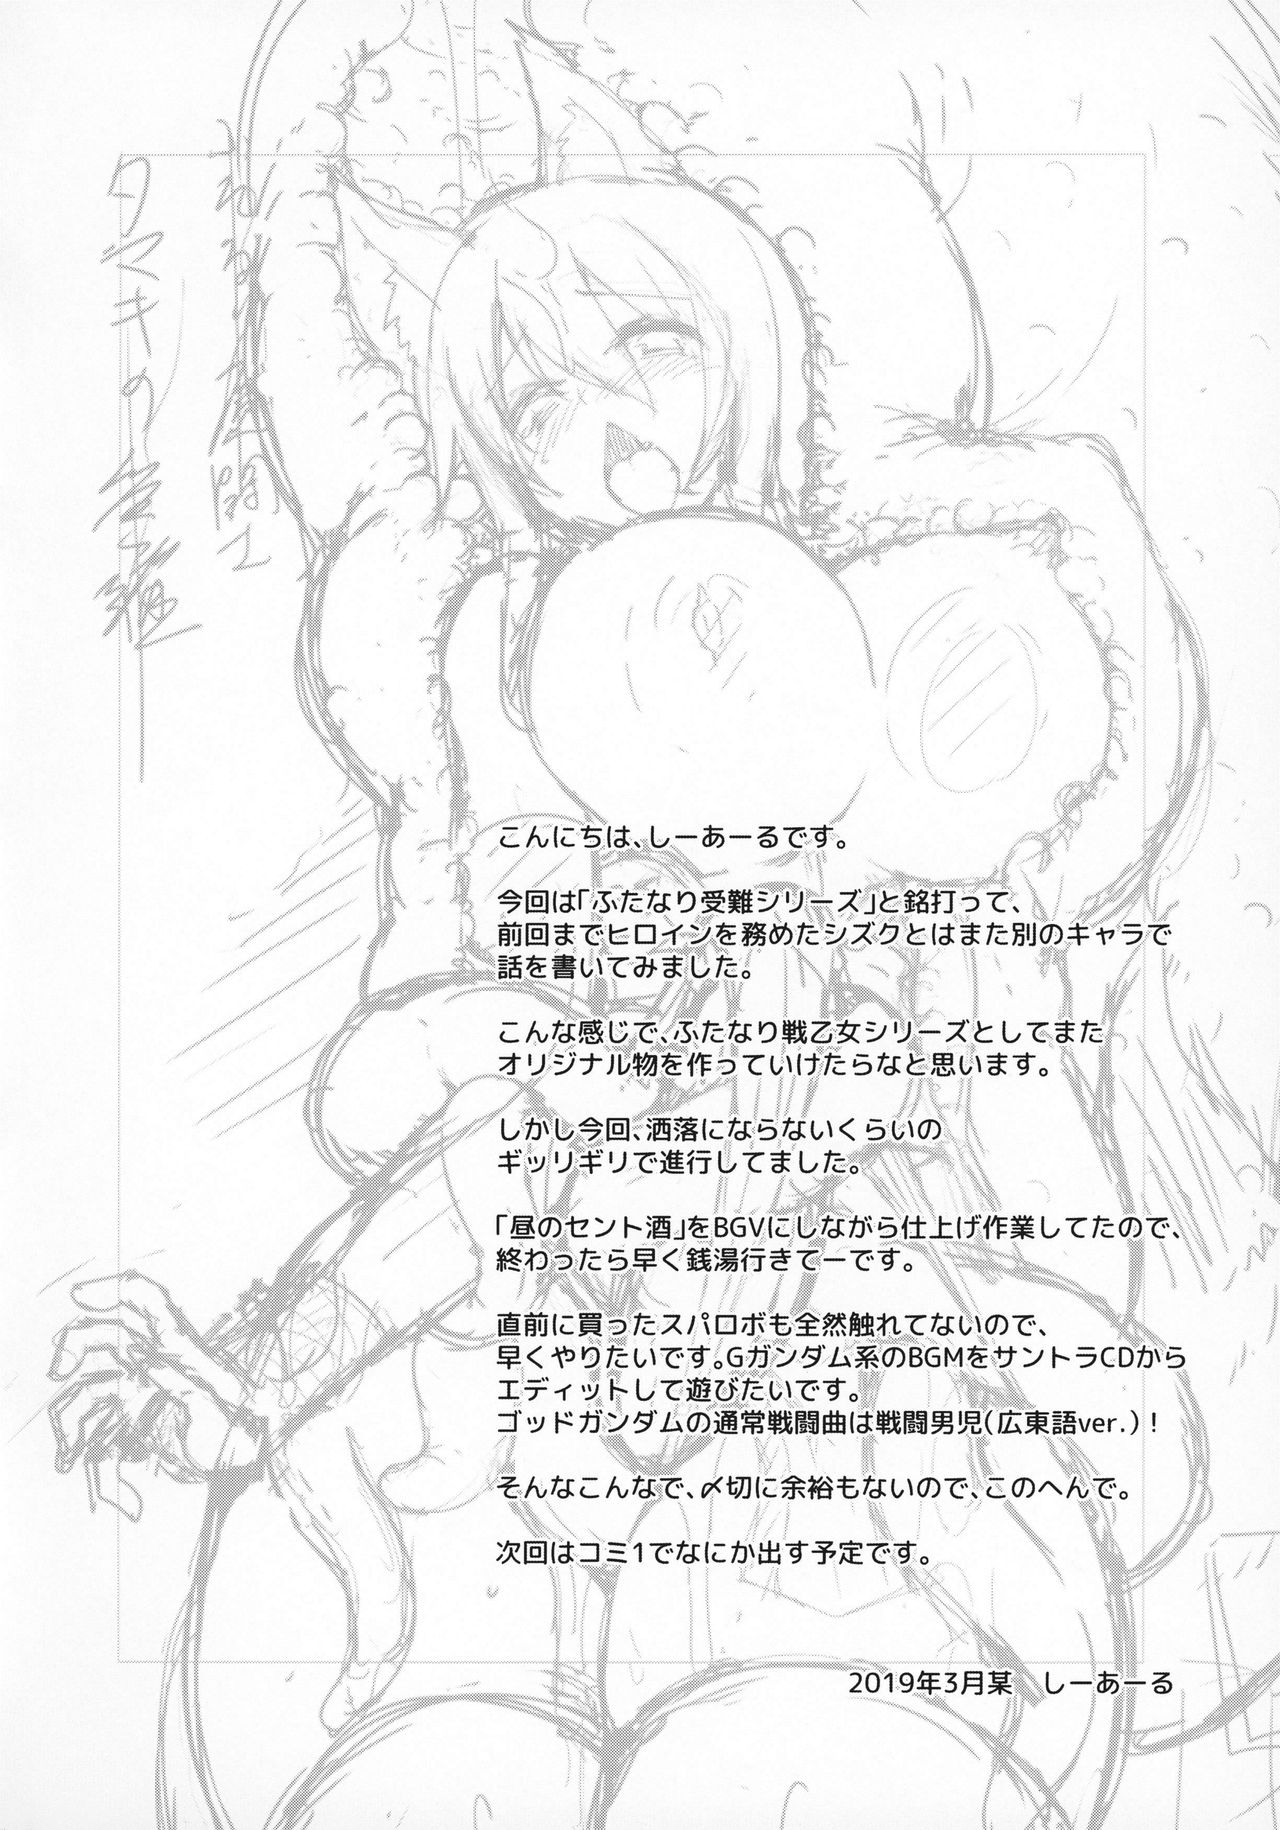 こんにちは、しーあーるです。
今回は「ふたなり受難シリーズ」と銘打って、
前回までヒロインを務めたシズクとはまた別のキャラで
話を書いてみました。
こんな感じで、ふたなり戦乙女シリーズとしてまた
オリジナル物を作っていけたらなと思います。
しかし今回、洒落にならないくらいの
ギッリギリで進行してました。
「昼のセント酒」をBGVにしながら仕上げ作業してたので、
終わったら早く銭湯行きてーです。
直前に買ったスパロボも全然触れてないので、
早くやりたいです。Gガンダム系のBGMをサントラCDから
エディットして遊びたいです。
ゴッドガンダムの通常戦闘曲は戦闘男児(広東語ver.)!
そんなこんなで、〆切に余裕もないので、このへんで。
次回はコミ1でなにか出す予定です。
2019年3月某　しーあーる
タマキの受難